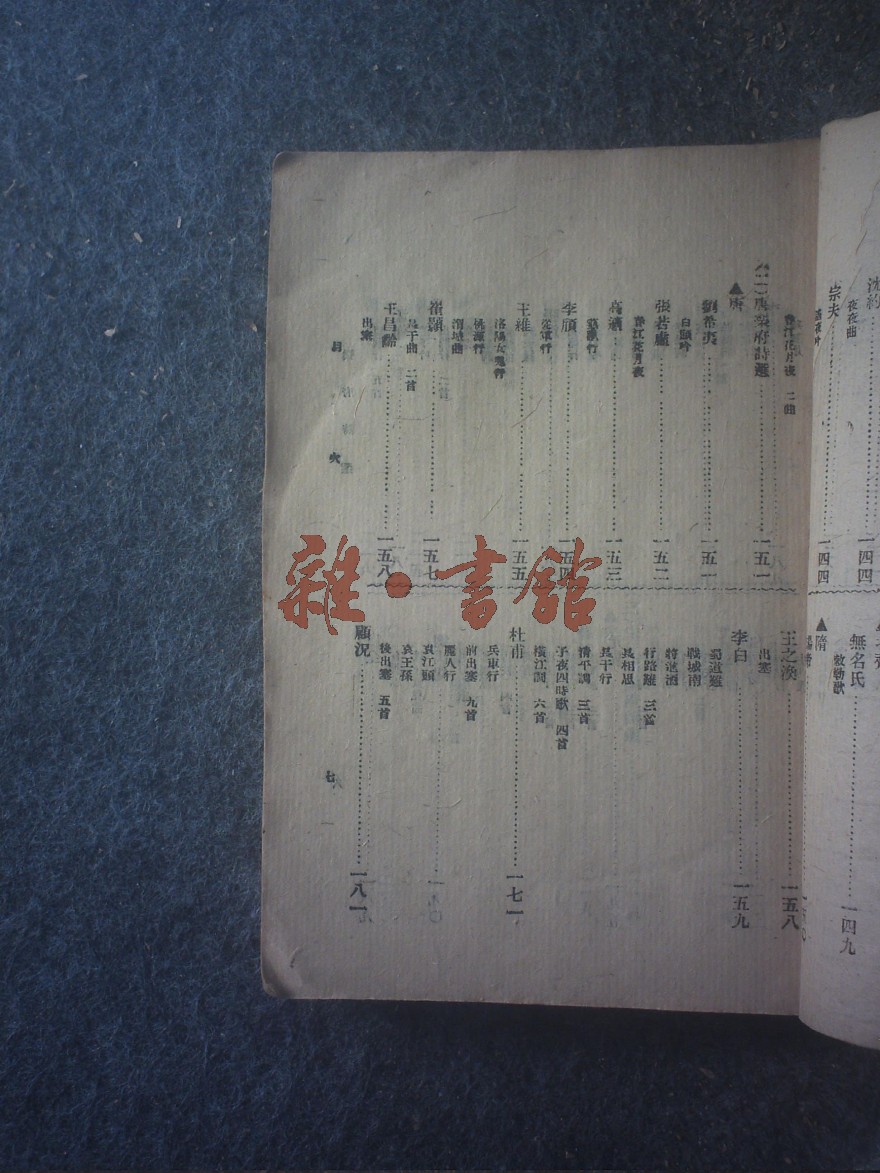 沈約 一四四
夜夜曲
宗夫 一四四
春江花月夜 二曲
(二)唐樂府詩選 一五一
▲唐
劉希夷 一五一
白頭吟
張若虛 一五二
春江花月夜
高適 一五三
燕歌行
李頎 一五四
從軍行
王維 一五五
洛陽女兒行
桃源行
渭城曲
崔顥 一五七
長干曲 二首
王昌齡 一五八
出塞
無名氏 一四九
敕勒歌
▲隋
王之渙 一五八
出塞
李白 一五九
蜀道難
戰城南
將進酒
行路難 三首
長相思
長干行
清平調 三首
子夜四時歌 四首
橫江詞 六首
杜甫 一七一
兵車行
前出塞 九首
麗人行
哀江頭
哀王孫
後出塞 五首
顧況 一八一
目次
七
雜·書館